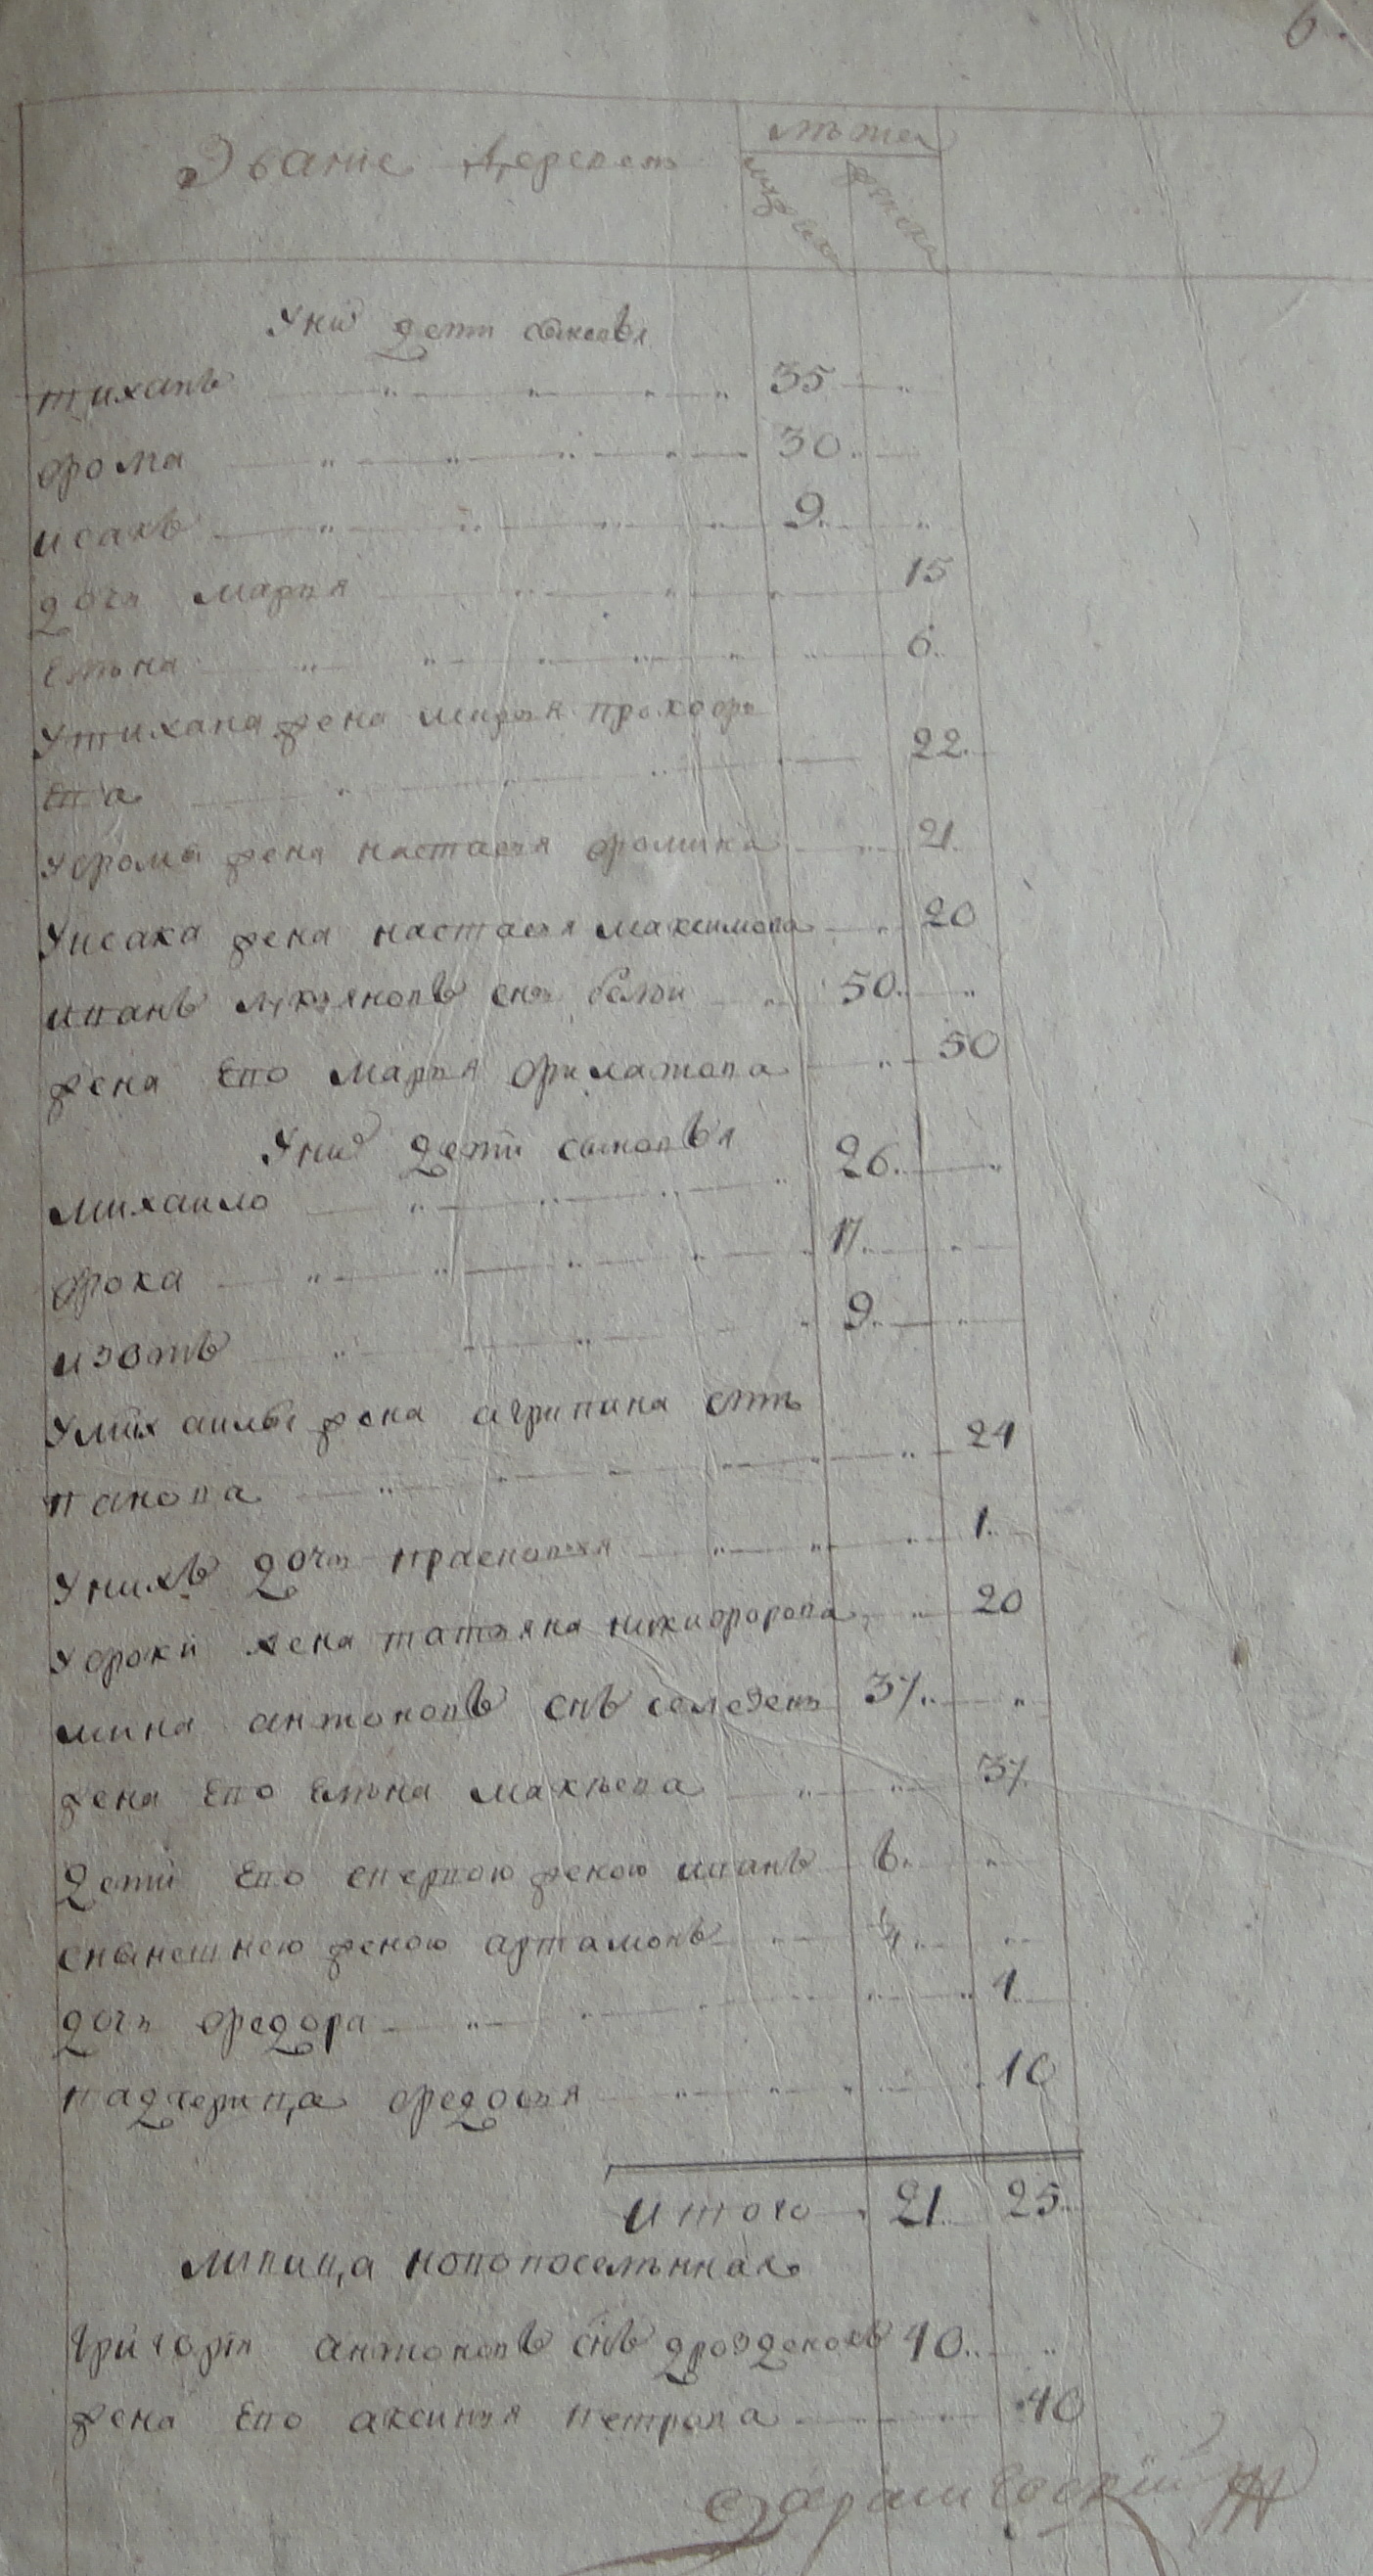 6.
Званіе деревень
лѣта
мужеск
женска
У них дети сыновья
тиханъ 35
фома 30
исакъ 9
дочь марья 15
елѣна 6
У тихана жена марья прохоро
ева 22
У фомы жена настасья фомина 21
У исака жена настасья максимова 20
иванъ лукьяновъ снъ 50
жена ево марья филатова 50
У них дети сыновья
михаило 26
фока 17
изотъ 9
У михаилы жена агрипина сте
панова 24
У нихъ дочь прасковья 1
У фоки жена татьяна никифорова 20
мина антоновъ снъ селезень 37
жена ево елѣна макѣева 37
дети ево с первою женою иванъ 6
с нынешнею женою артамонъ
дочь федора 1
падчерица федосья 10
итого 21 25
липица новопоселѣнная
григорiи антоновъ снъ дрозденокъ 40
жена ево аксинья петрова 40